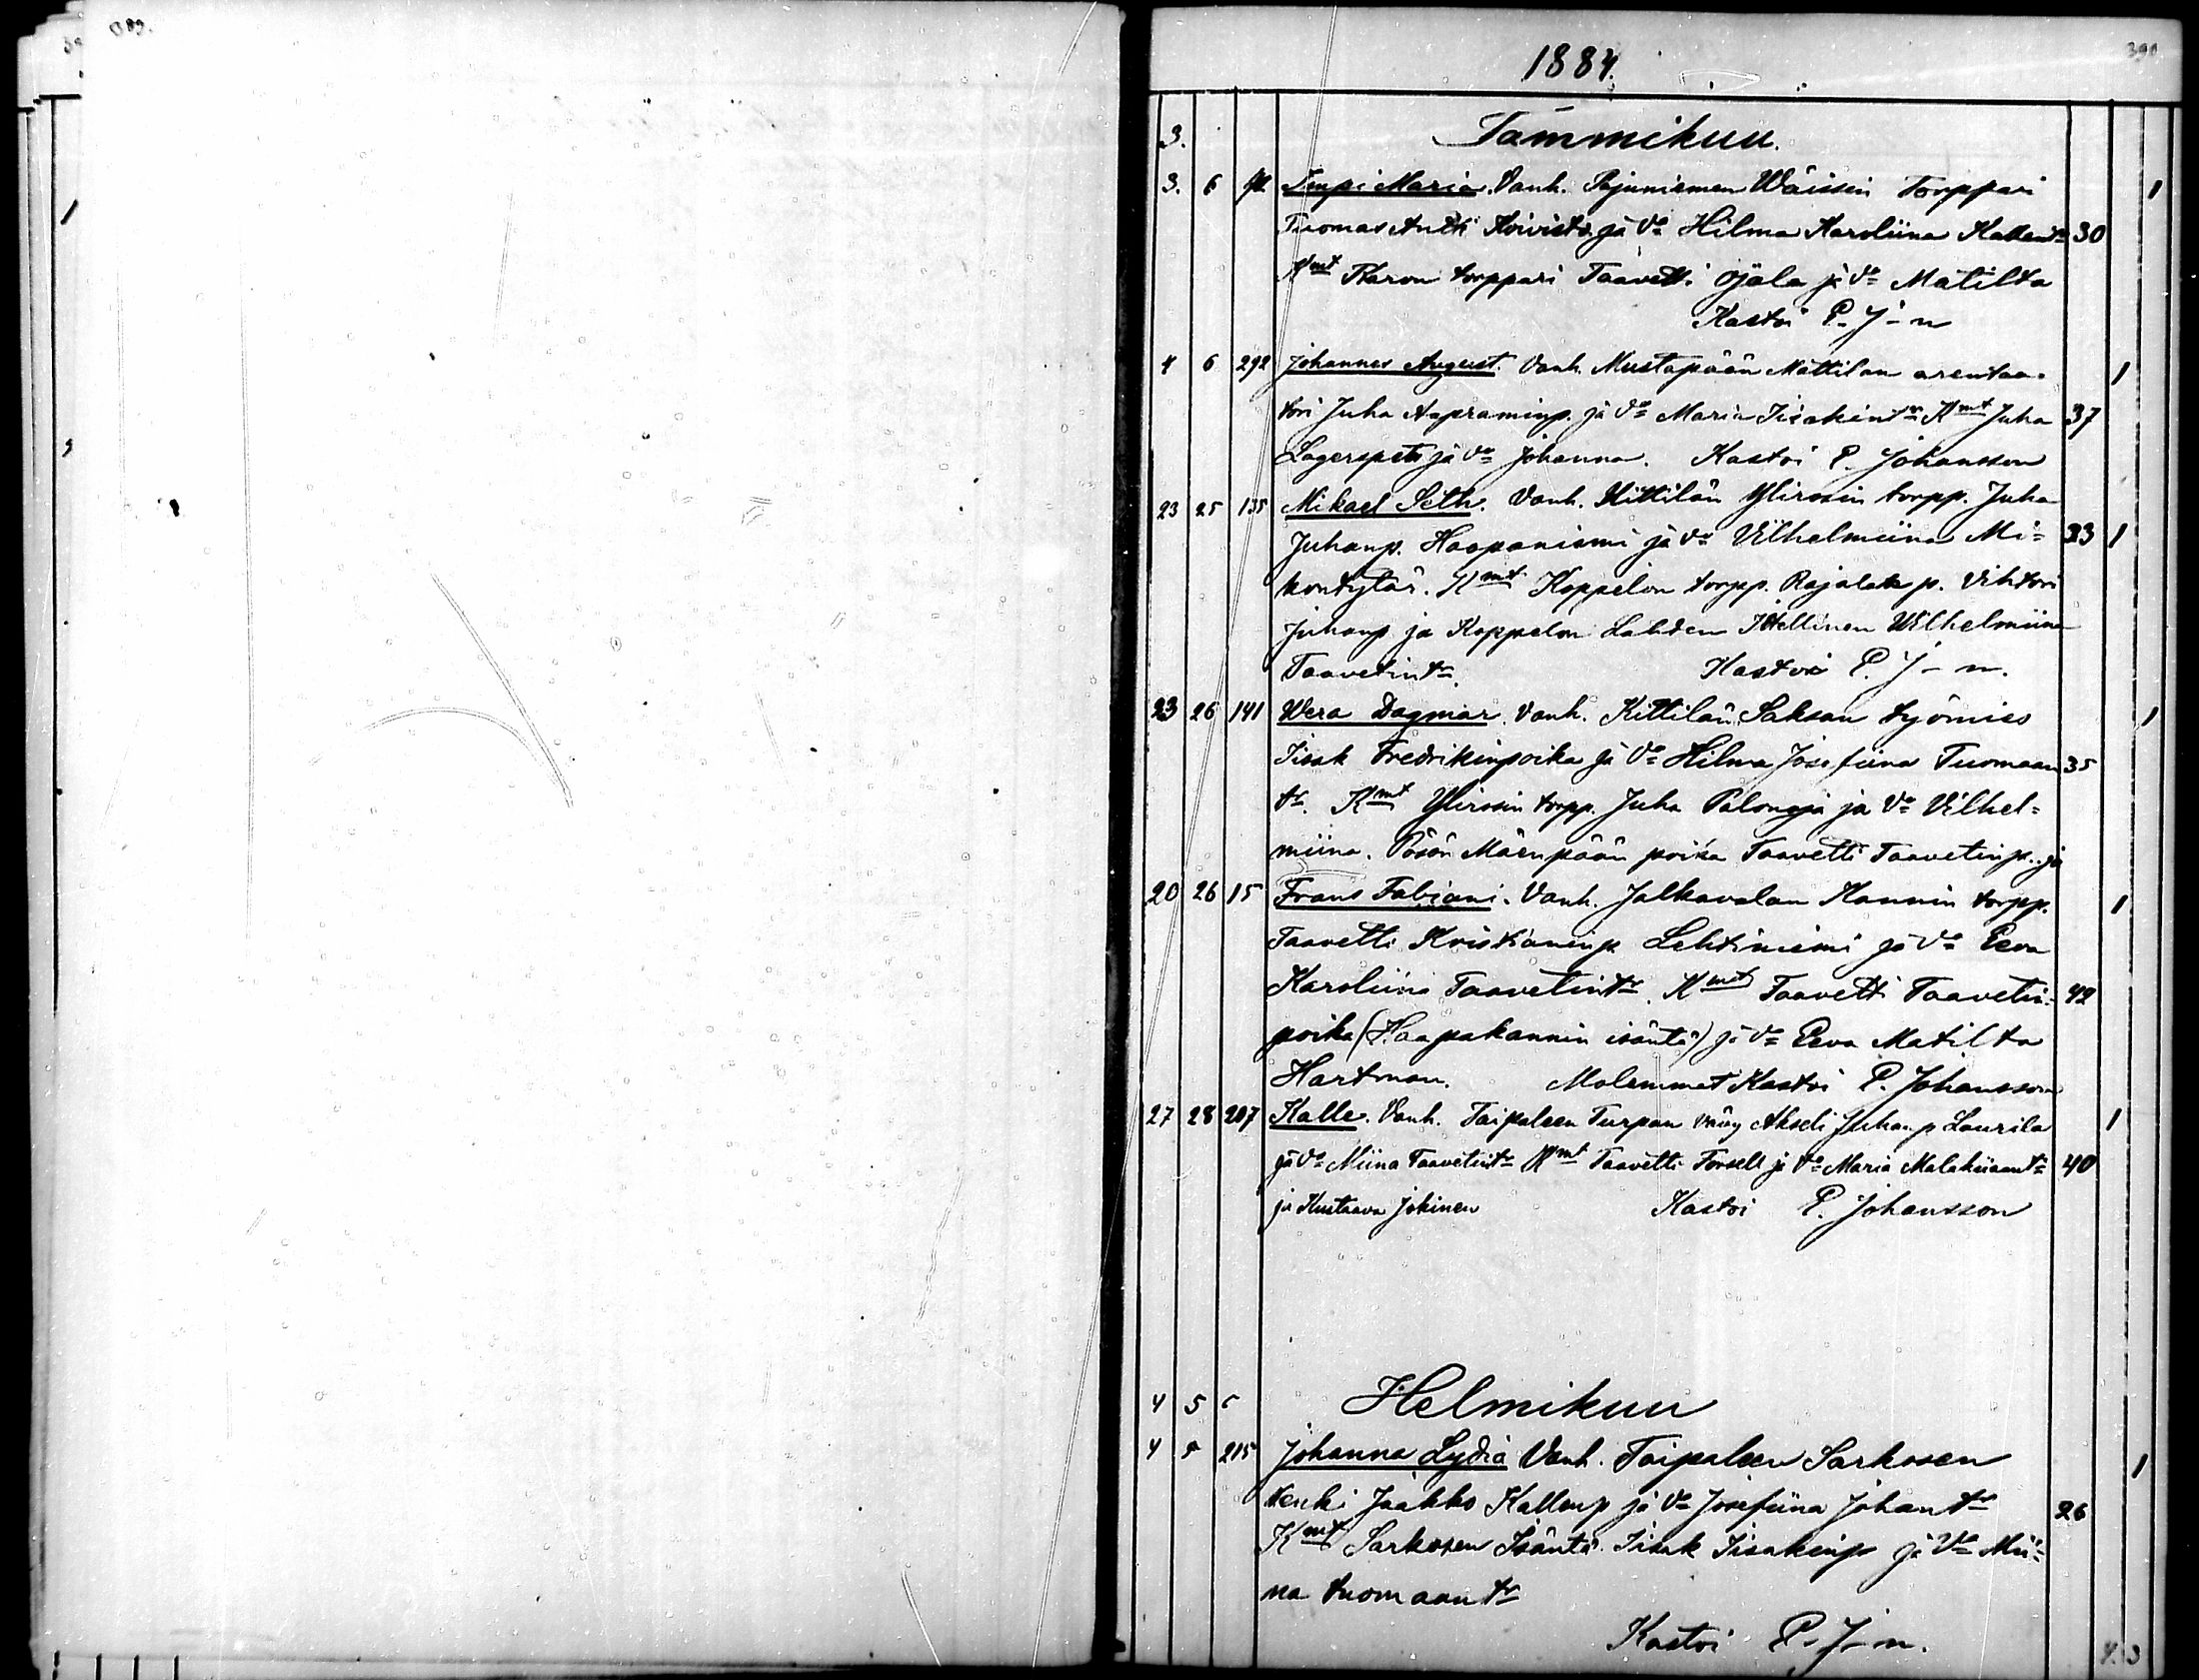 389.
390
1884.
3. Tammikuu.
3. 6 Impi Maria. Vanh. Pajuniemen Wäissin Torppari 1
Tuomas Antti Koivisto ja Vo Hilma Karoliina Kallentr 30
Kmt Karon torppari Taavetti Ojala ja Vo Matilta
Kastoi P. J-n
4 6 292 Johannes August. Vanh. Mustapään Mattilan arentaa- 1
tori Juha Aapraminp. ja Vo Maria Iisakintr Kmt Juha 37
Lagerspets ja Vo Johanna. Kastoi P. Johansson
23 25 135 Mikael Seth. Vanh. Kittilän Ylirosin torpp. Juha
Juhanp. Haapaniemi ja Vo Vilhelmiina Mi= 33 1
kontytär. Kmt Koppelon torpp. Rajalah p. Vihtori
Juhanp ja Koppelon Lahden Itellinen Wilhelmiina
Taavetintr. Kastoi P. J-n.
23 26 141 Wera Dagmar. Vanh. Kittilän Saksan työmies 1
Iisak Fredrikinpoika ja Vo Hilma Josefiina Tuomaan 35
tr. Kmt Ylirosin torpp. Juha Palonoja ja Vo Vilhel=
miina. Pösön Mäenpään poika Taavetti Taavetinp. ja
20 26 15 Frans Fabiani. Vanh. Jalkavalan Kannin torpp. 1
Taavetti Kristianinp Lehtiniemi ja Vo Eeva
Karoliina Taavetintr. Kmt Taavetti Taavetin= 42
poika (Haapakannin isäntä) ja Vo Eeva Matilta
Hartman. Molemmat Kastoi P. Johansson
27 28 207 Kalle. Vanh. Taipaleen Turpan vävy Akseli Juhanp Laurila 1
ja Vo Miina Taavetintr Kmt Taavetti Forsell ja Vo Maria Malakiaantr 40
ja Kustaava Jokinen Kastoi P. Johansson
4 5 Helmikuu
4 5 215 Johanna Lydia Vanh. Taipaleen Sarkosen 1
renki Jaakko Kallenp ja Vo Josefiina Johantr 26
Kmt Sarkosen Isäntä Iisak Iisakinp ja Vo Mii=
na tuomaantr
Kastoi P. J-n.